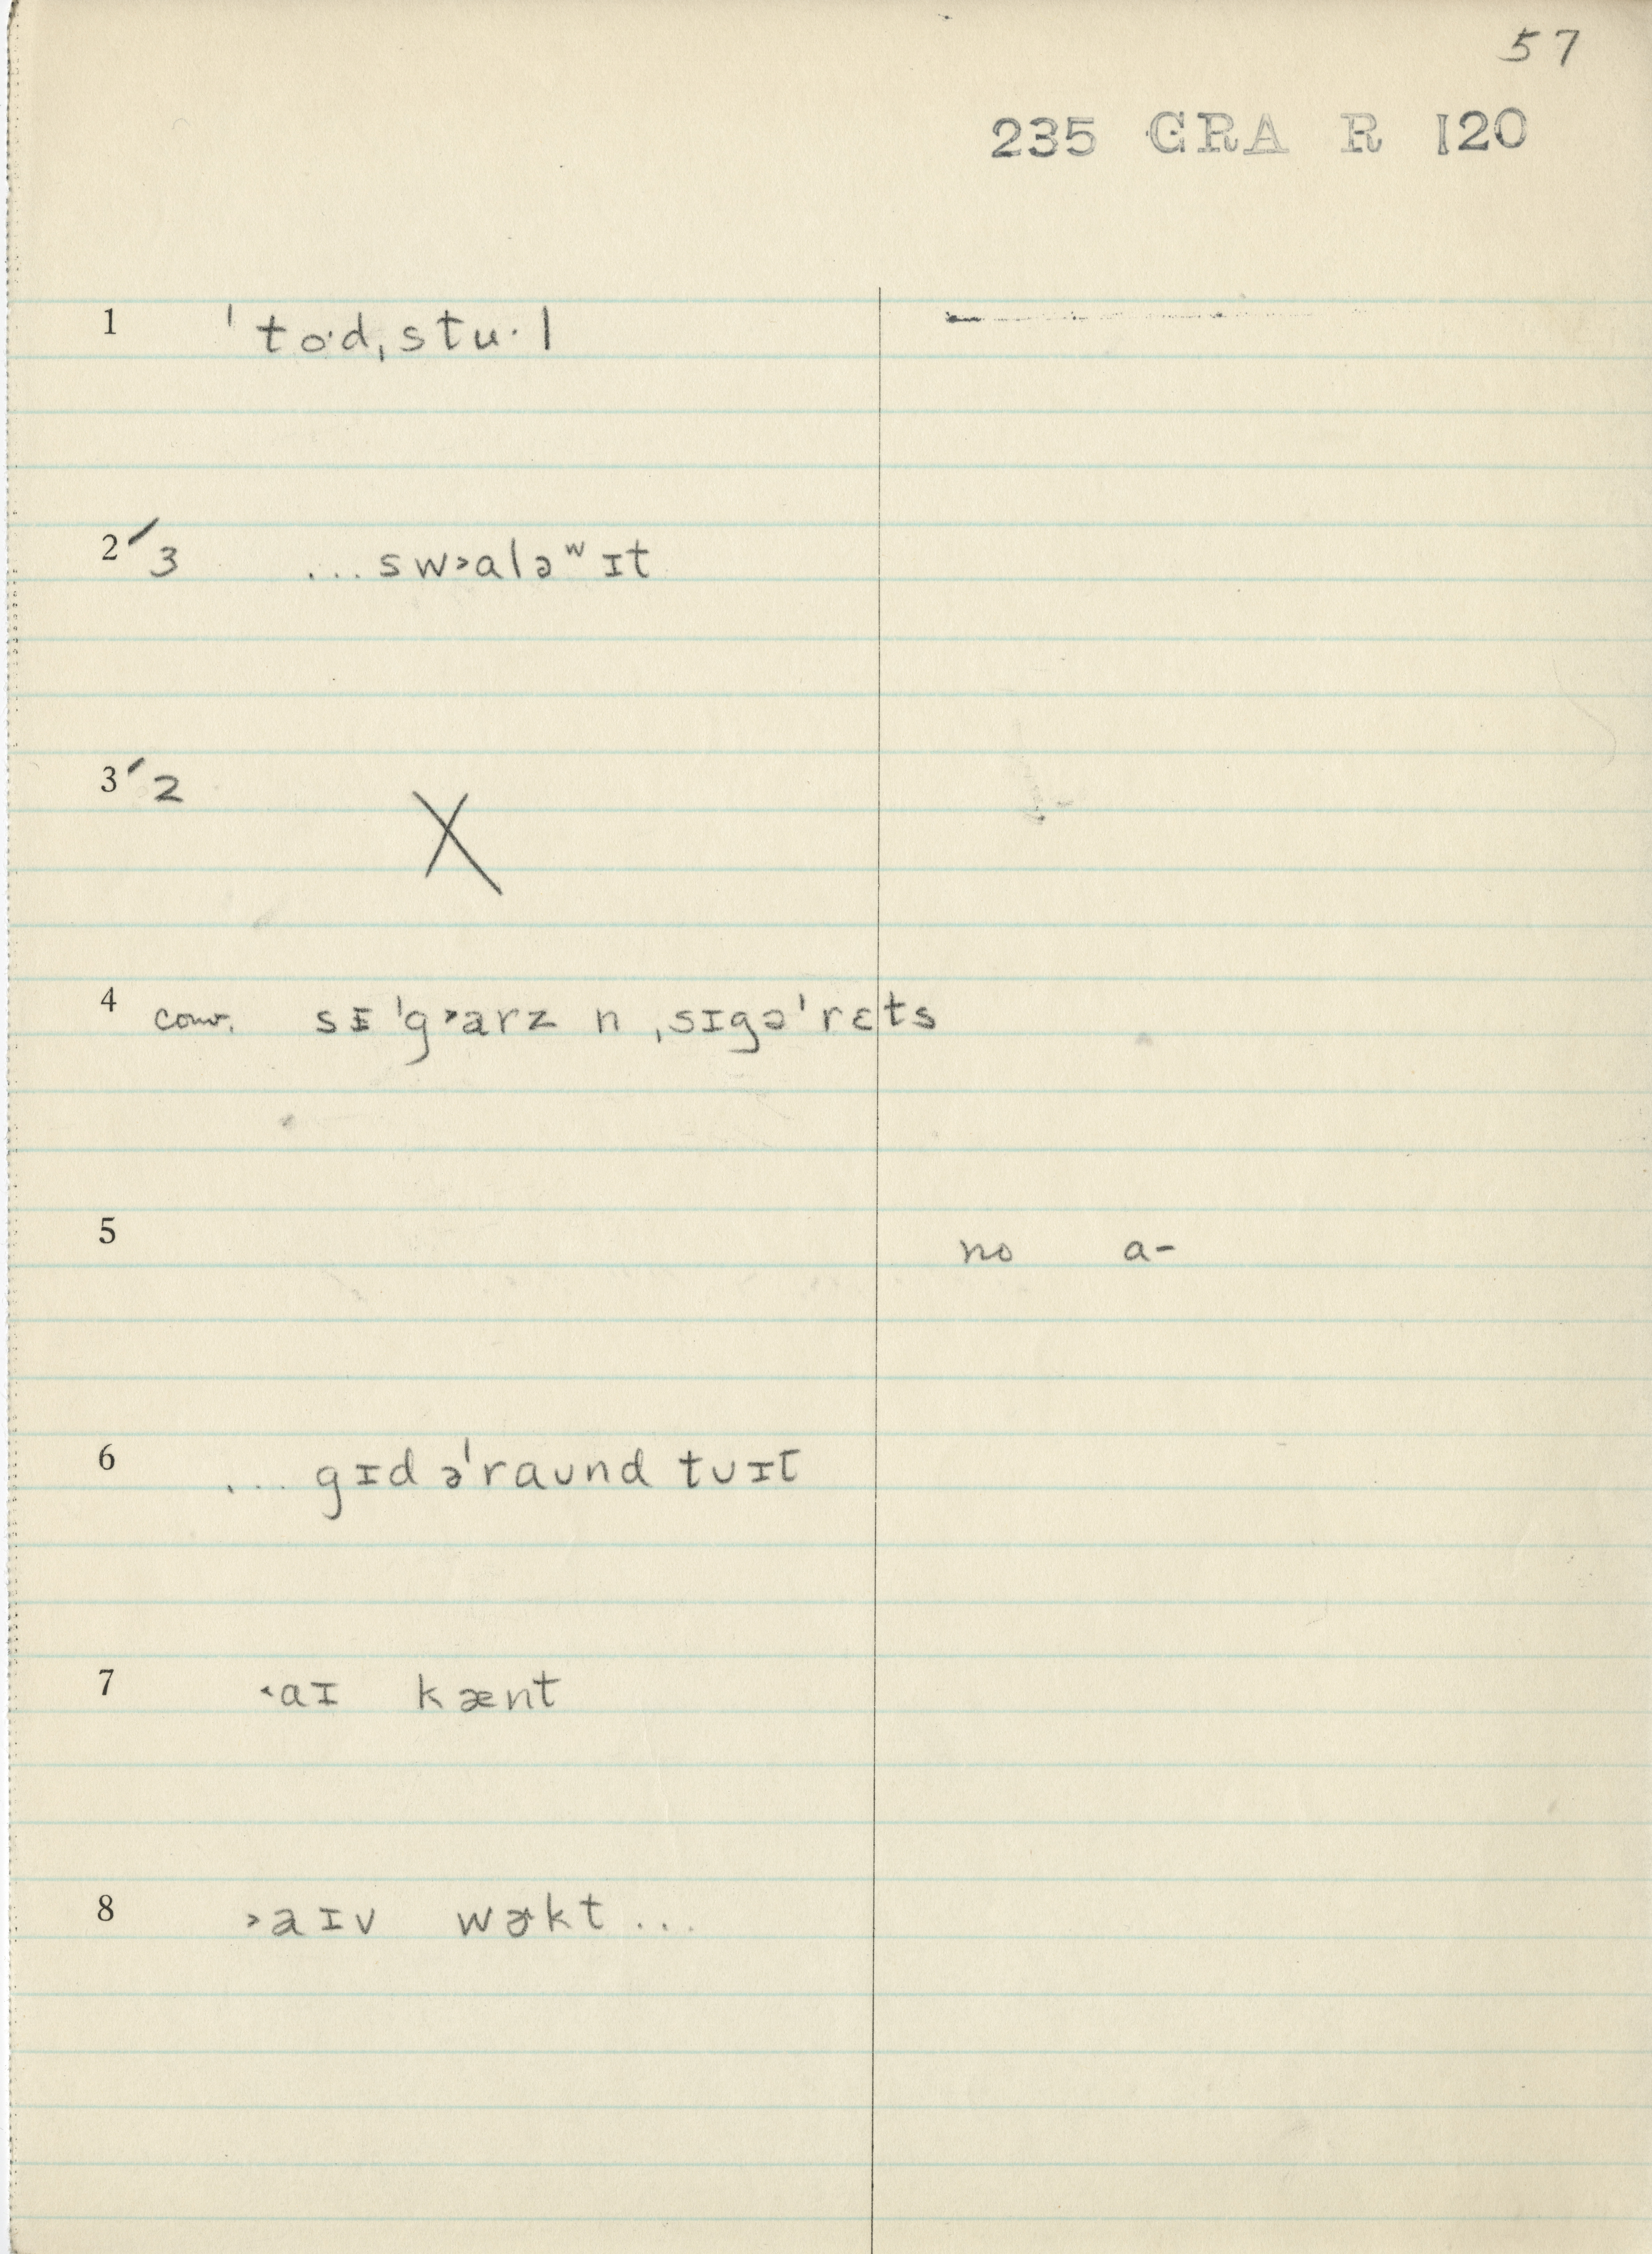 57
235 GRA R 120
1 ˈto·dˌstu·l
2 ′3 ...sw˃aləʷɪt
3 ′2 X
4 conv. sɪˈg˃arz n ˌsɪgəˈrɛts
5 no a-
6 ... gɪd əˈraʊnd tʊɪt
7 ˂aɪ kænt
8 ˃aɪv wɚkt ...